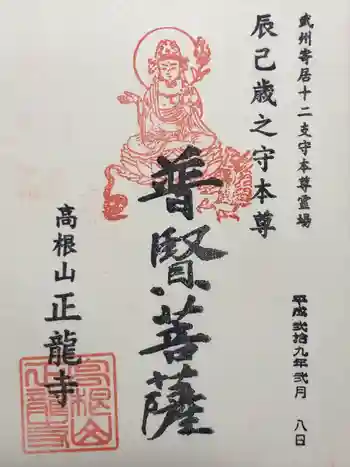 武州寄居十二支守本尊霊場
辰巳歳之守本尊
普賢菩薩
高根山正龍寺
平成弐拾九年弐月八日
高根山正龍寺